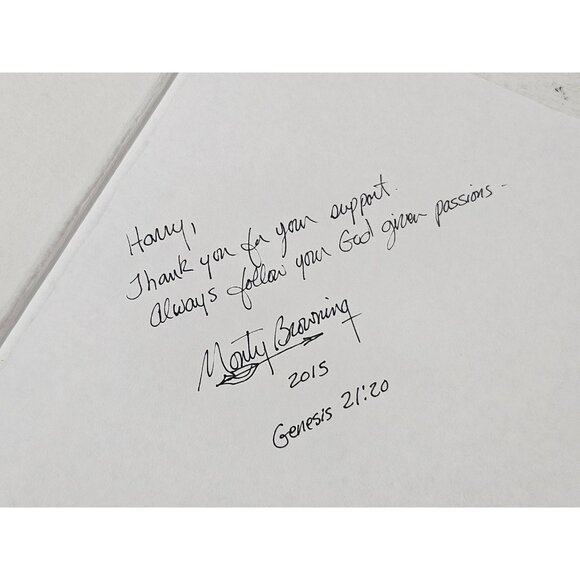 Harry,
Thank you for your support.
Always follow your God given passions -
Monty Browning
2015
Genesis 21:20